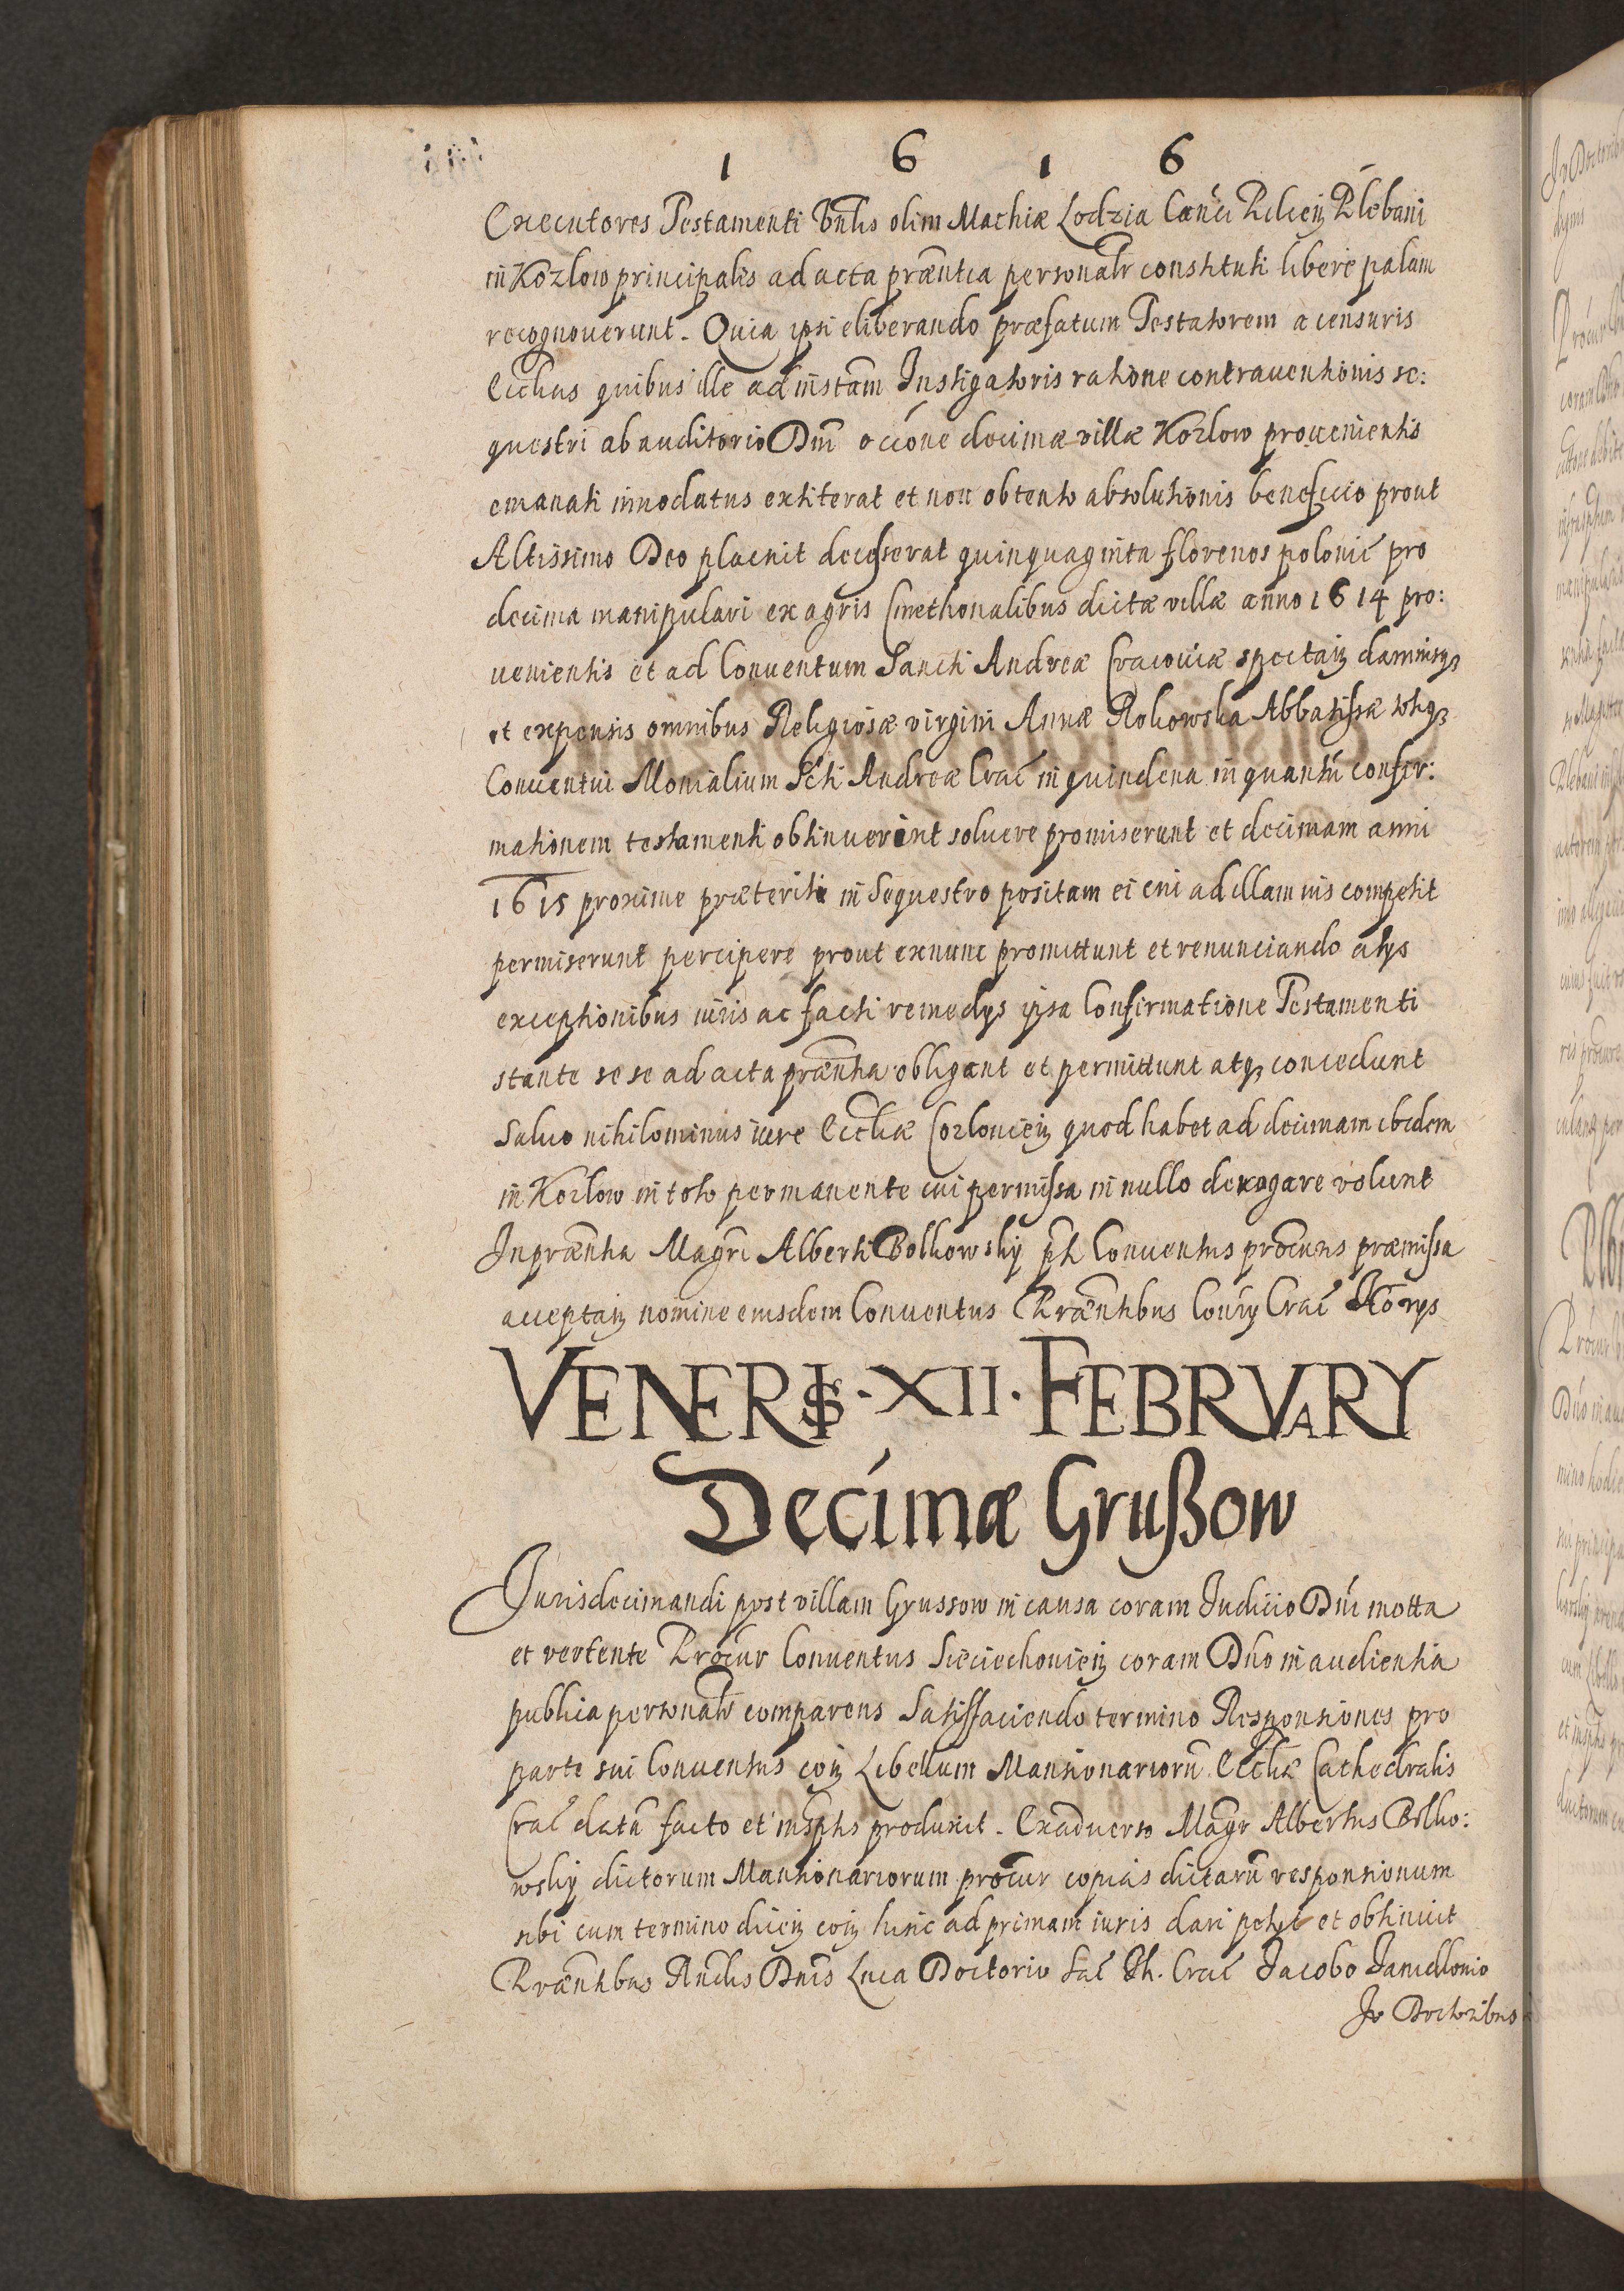 1 6 1 6
Executores Testamenti Vnlis olim Mathiæ Lodzia Canci Pilicen Plebani
in Kozlow principales ad acta præntia personalr constituti libere palam
recognouerunt. Quia ipsi eliberando præfatum Testatorem a censuris
Ecclius quibus ille ad instam Instigatoris ratione contrauentionis se:
questri ab auditorio Dni occone decimæ villæ Kozlow prouenientis
emanati innodatus extiterat et non obtento absolutionis beneficio prout
Altissimo Deo placuit decesserat quinquaginta florenos polonic pro
decima manipulari ex agris Cmethonalibus dictæ villæ anno 1614 pro:
uenientis et ad Conuentum Sancti Andreæ Cracouiæ spectan damnisq
et expensis omnibus Religiosæ virgini Annæ Rokowska Abbatissæ totiq
Conuentui Monialium Scti Andreæ Crac in quindena in quantu confir:
mationem testamenti obtinuerint soluere promiserunt et decimam anni
1615 proxime præteriti in Sequestro positam ei cui ad illam ius competit
permiserunt percipere prout exnunc promittunt et renunciando alys
exceptionibus iuris ac facti remedys ipsa Confirmatione Testamenti
stante sese ad acta præntia obligant et permittunt atq concedunt
Saluo nihilominus iure Eccliæ Cozlouien quod habet ad decimam ibidem
in Kozlow in toto permanente cui permissa in nullo derogare volunt
In præntia Magri Alberti Bolkowsky pti Conuentus procuris præmissa
acceptan nomine eiusdem Conuentus Præntibus Crac Norys
VENERIS · XII · FEBRVARY
Decimæ Grußow
Juris decimandi post villam Grussow in causa coram Iudicio Dni motta
et vertente Procur Conuentus Sieciechouien coram Dno in audientia
publica personalr comparens Satisfaciendo termino Responsiones pro
parte sui Conuentus con Libellum Mansionarioru Eccliæ Cathedralis
Crac datu facto et inscptis produxit. Exaduerso Magr Albertus Bolko:
wsky dictorum Mansionariorum procur copias dictaru responsionum
sibi cum termino dicen con hinc ad primam iuris dari petyt et obtinuit
Præntibus Rndis Dnis Luca Doctorio Sac Th. Crac Jacobo Janidlouio
Iv Doctoribus